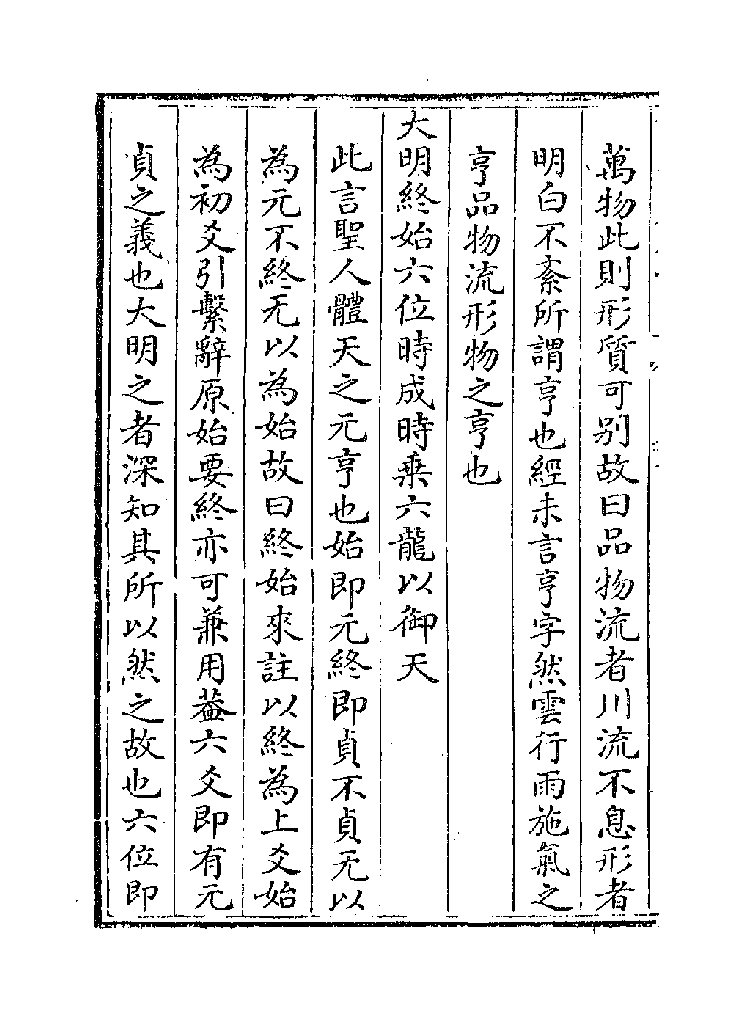 萬物此則形質可别故曰品物流者川流不息形者
明白不紊所謂亨也經未言亨字然雲行雨施氣之
亨品物流形物之亨也
大明終始六位時成時乘六龍以御天
此言聖人體天之元亨也始即元終即貞不貞无以
為元不終无以為始故曰終始來註以終為上爻始
為初爻引繫辭原始要終亦可兼用葢六爻即有元
貞之義也大明之者深知其所以然之故也六位即